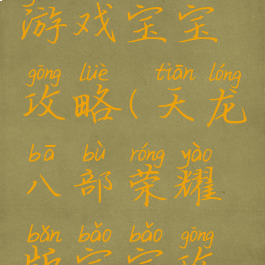 游戏宝宝
gōng lüè tiān lóng
攻略(天龙
bā bù róng yào
八部荣耀
bǎn bǎo bǎo gōng
版宝宝攻